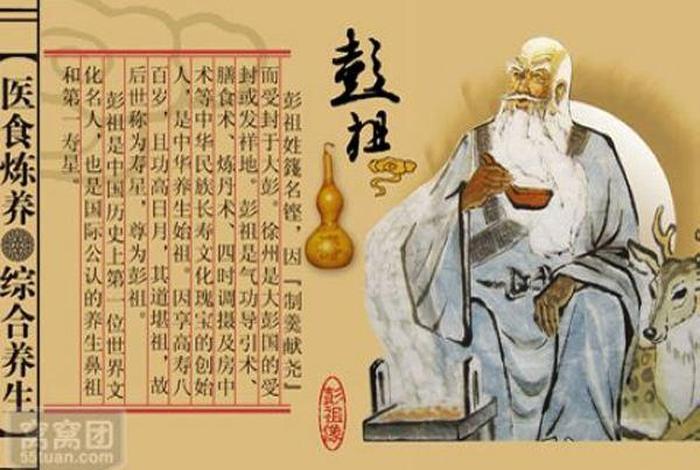 彭祖
彭祖姓篯名铿，因『制羹献尧』
而受封于大彭。徐州是大彭国的受
封或发样地。彭祖是气功导引术、
膳食术、炼丹术、四时调摄及房中
术等中华民族长寿文化瑰宝的创始
人，是中华养生始祖。因享高寿八
百岁，且功高日月，其道堪祖，故
后世称为寿星，尊为彭祖。
彭祖是中国历史上第一位世界文
化名人，也是国际公认的养生鼻祖
和第一寿星。
【医食炼养 综合养生】
彭祖像
窝窝团
55tuan.com